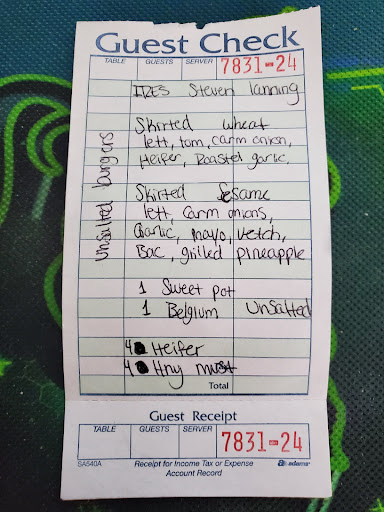 Guest Check
TABLE GUESTS SERVER 7831-24
Steven Lanning
Skirted wheat
lett, tom, carm onion,
Heifer, Roasted garlic,
unsalted burgers
Skirted Sesame
lett, Carm onions,
Garlic, mayo, ketch,
Bac, grilled pineapple
1 Sweet pot
1 Belgium Unsalted
4 Heifer
4 Hny must
Total
Guest Receipt
TABLE GUESTS SERVER 7831-24
SA540A Receipt for Income Tax or Expense adams
Account Record